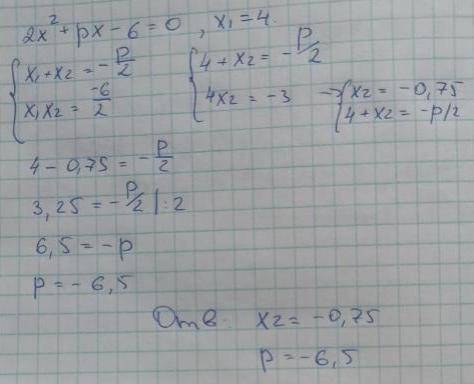 2x² + px - 6 = 0 , x₁ = 4.
{ x₁ + x₂ = -p/2 { 4 + x₂ = -p/2
{ x₁x₂ = -6/2 { 4x₂ = -3 → { x₂ = -0,75
{ 4 + x₂ = -p/2
4 - 0,75 = -p/2
3,25 = -p/2 | : 2
6,5 = -p
p = -6,5
Отв. x₂ = -0,75
p = -6,5